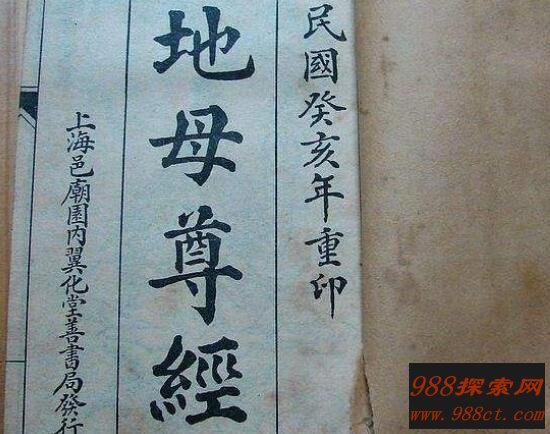 民國癸亥年重印
地母尊經
上海邑廟園內翼化堂善書局發行
988探索网
www.988ct.com